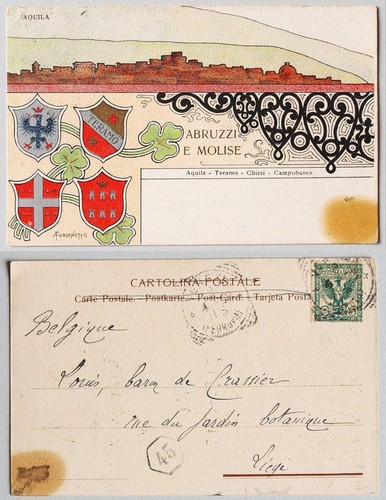 AQUILA
TERAMO
ABRUZZI
E MOLISE
Aquila - Teramo - Chieti - Campobasso
CARTOLINA POSTALE
Carte Postale. - Postkarte. - Post-Card. - Tarjeta Posta
Belgique
Louis, baron de Crassier
rue du Jardin botanique
Liège
45